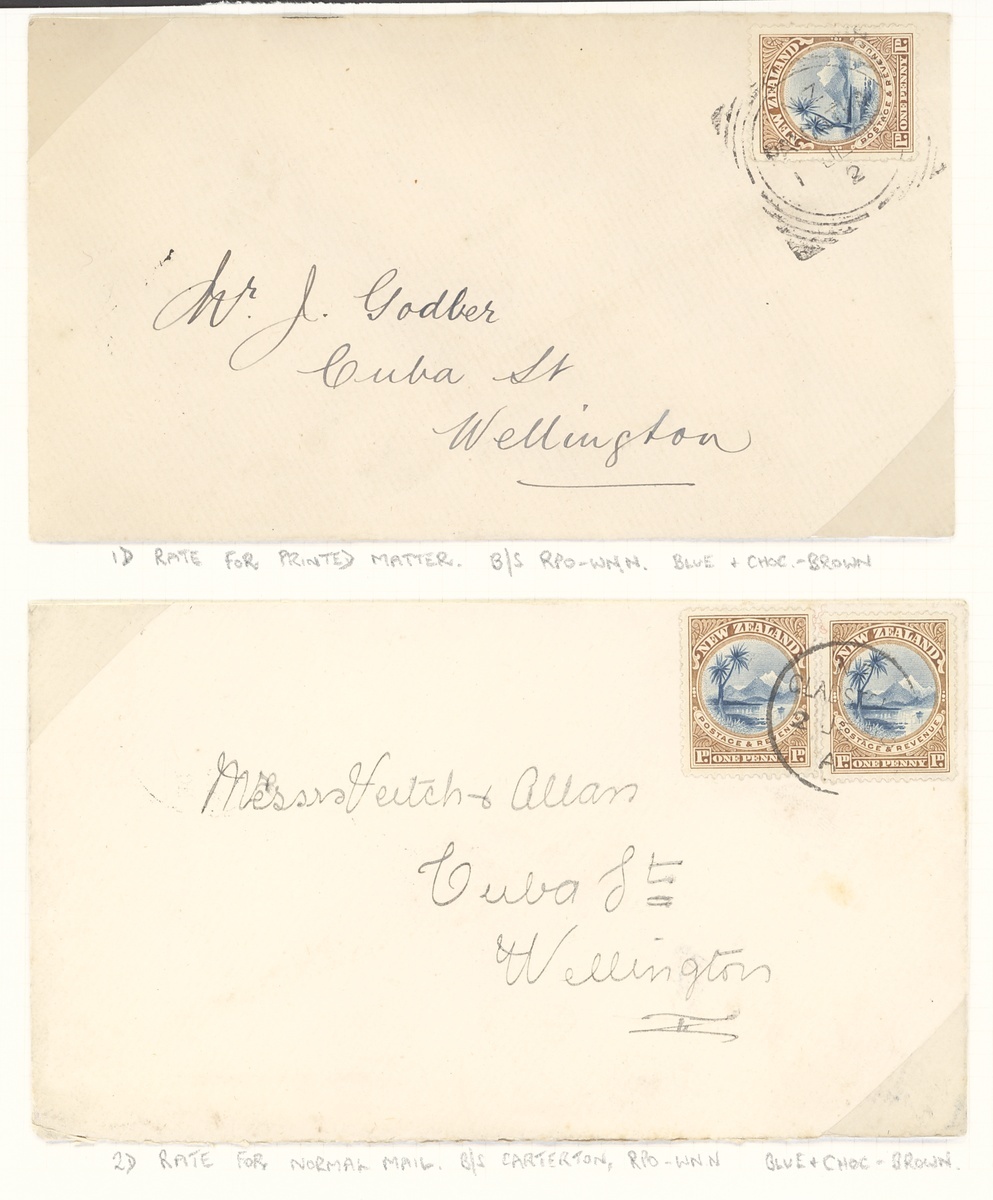 NEW ZEALAND
POSTAGE & REVENUE
1D ONE PENNY 1D
2
Mr. J. Godber
Cuba St
Wellington
1D RATE FOR PRINTED MATTER. B/S RPO-WN.N. BLUE + CHOC.-BROWN
NEW ZEALAND
POSTAGE & REVENUE
1D ONE PENNY 1D
NEW ZEALAND
POSTAGE & REVENUE
1D ONE PENNY 1D
2
Messrs Veitch & Allan
Cuba St
Wellington
2D RATE FOR NORMAL MAIL. B/S CARTERTON, RPO-WNN BLUE + CHOC-BROWN.